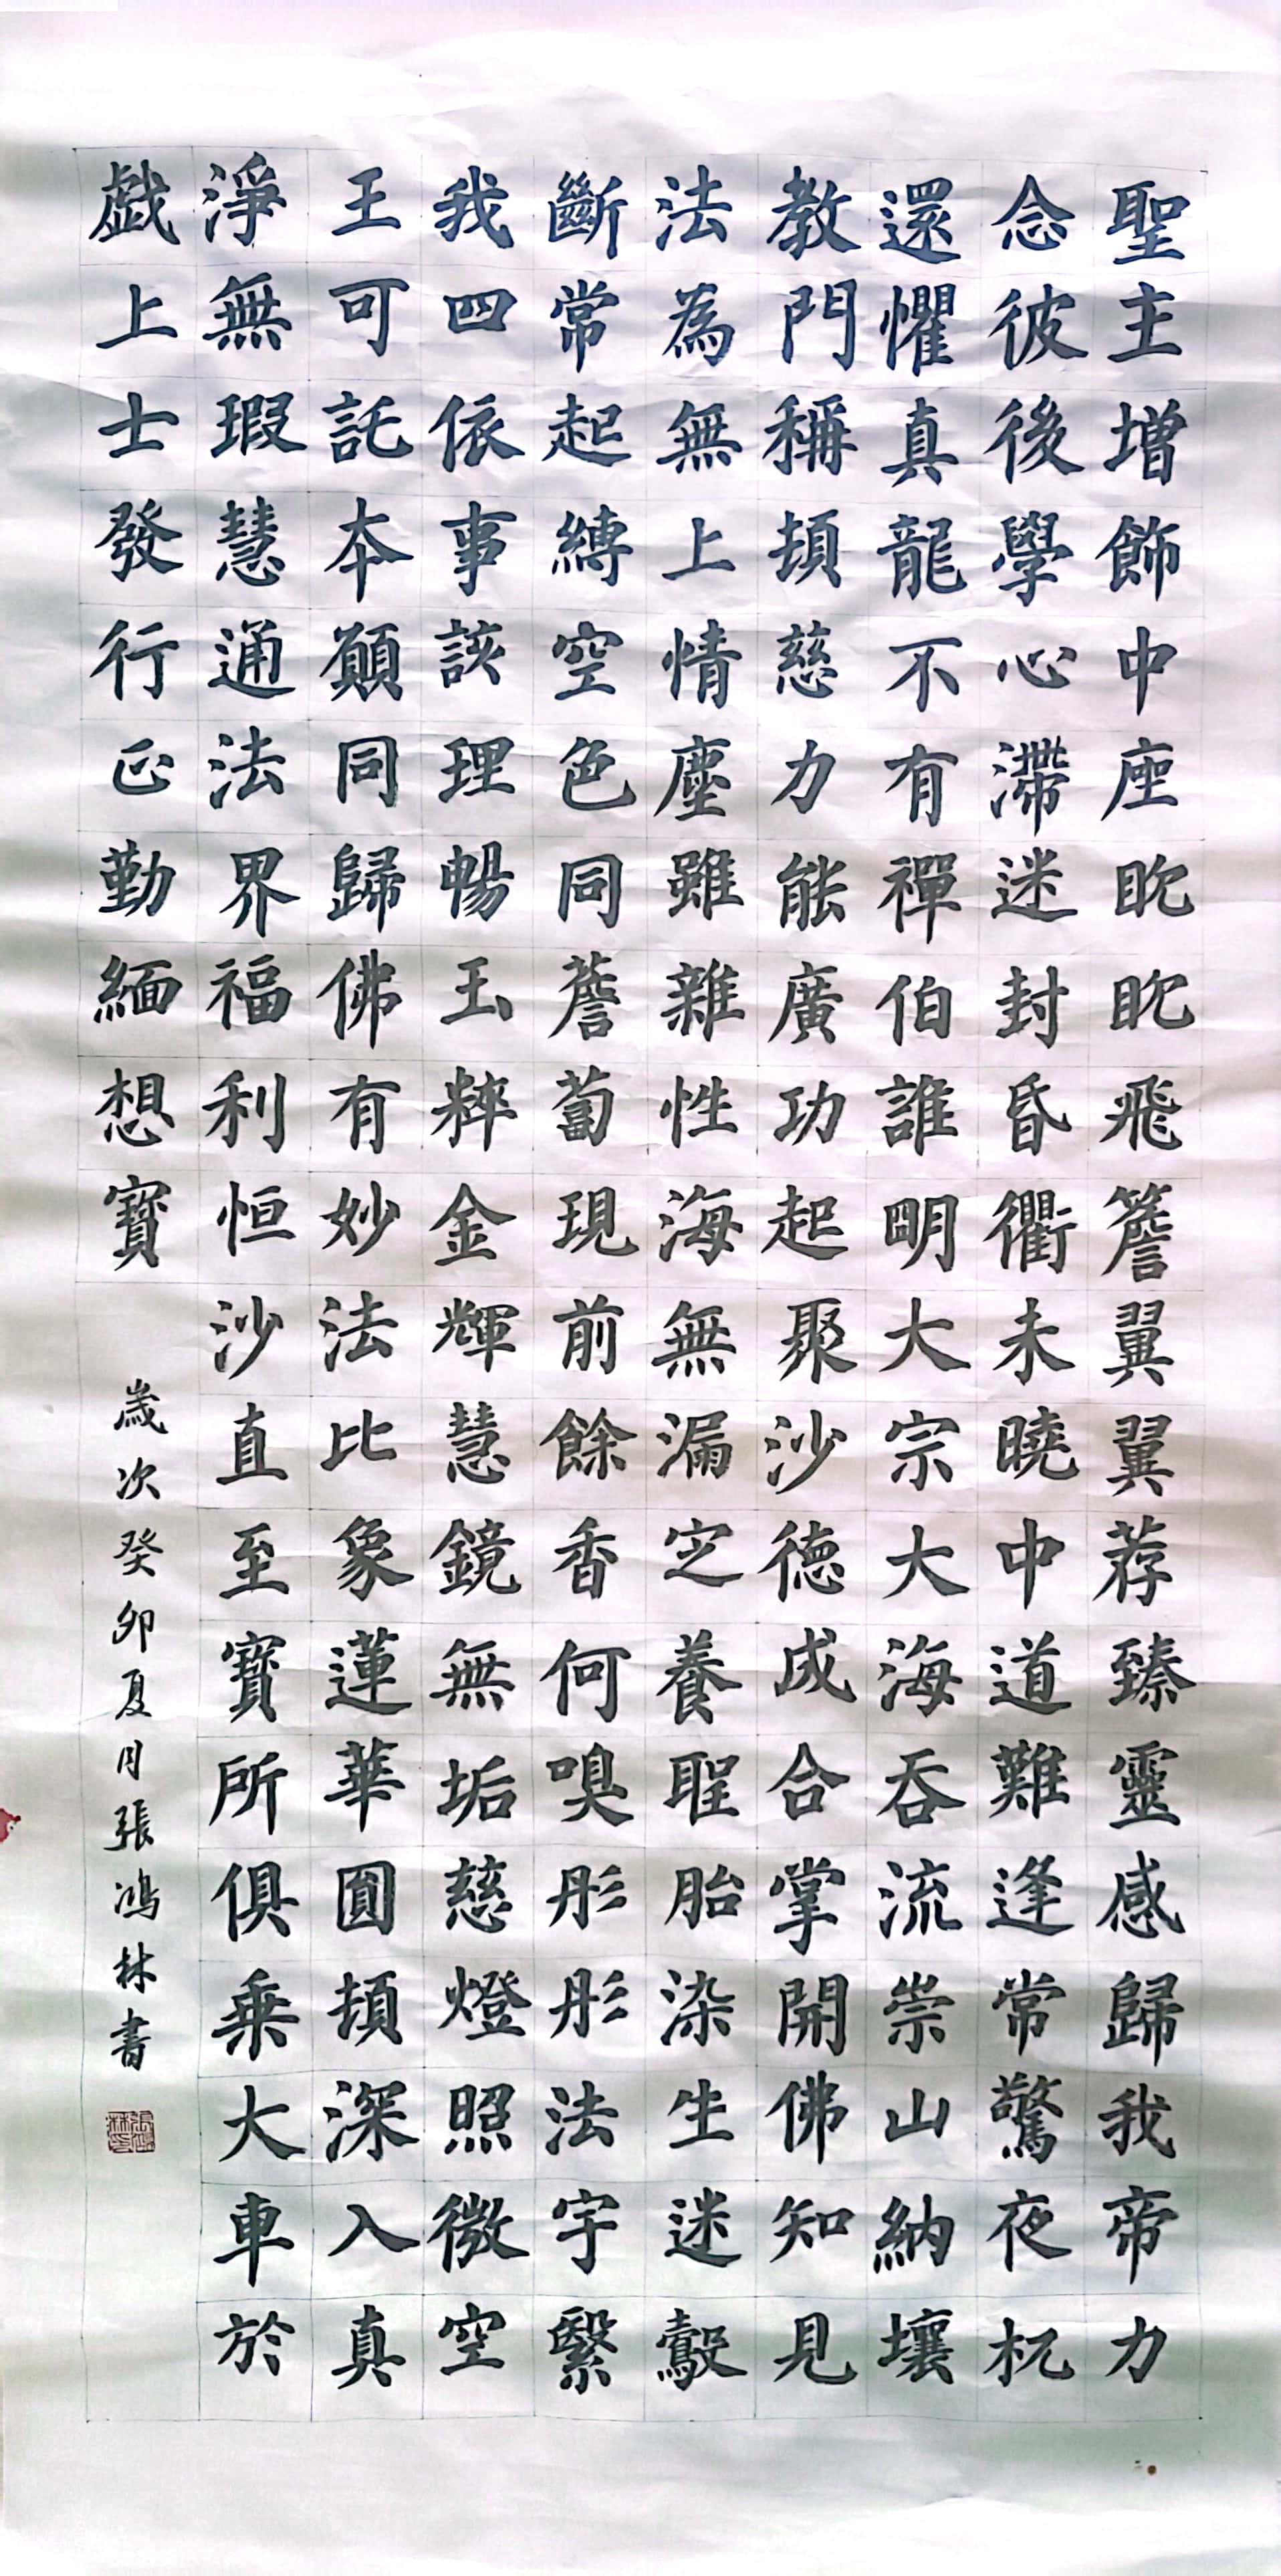 聖主増飾中座眈眈飛簷翼翼荐臻靈感歸我帝力
念彼後學心滯迷封昏衢未曉中道難逢常驚夜杌
還懼真龍不有禪伯誰明大宗大海吞流崇山納壤
教門稱頓慈力能廣功起聚沙德成合掌開佛知見
法為無上情塵雖雜性海無漏定養聖胎染生迷鷇
斷常起縛空色同薝蔔現前餘香何嗅彤彤法宇繄
我四依事該理暢玉粹金輝慧鏡無垢慈燈照微空
王可託本願同歸佛有妙法比象蓮華圓頓深入真
淨無瑕慧通法界福利恒沙直至寶所俱乘大車於
戯上士發行正勤緬想寶
歲次癸卯夏月張鴻林書